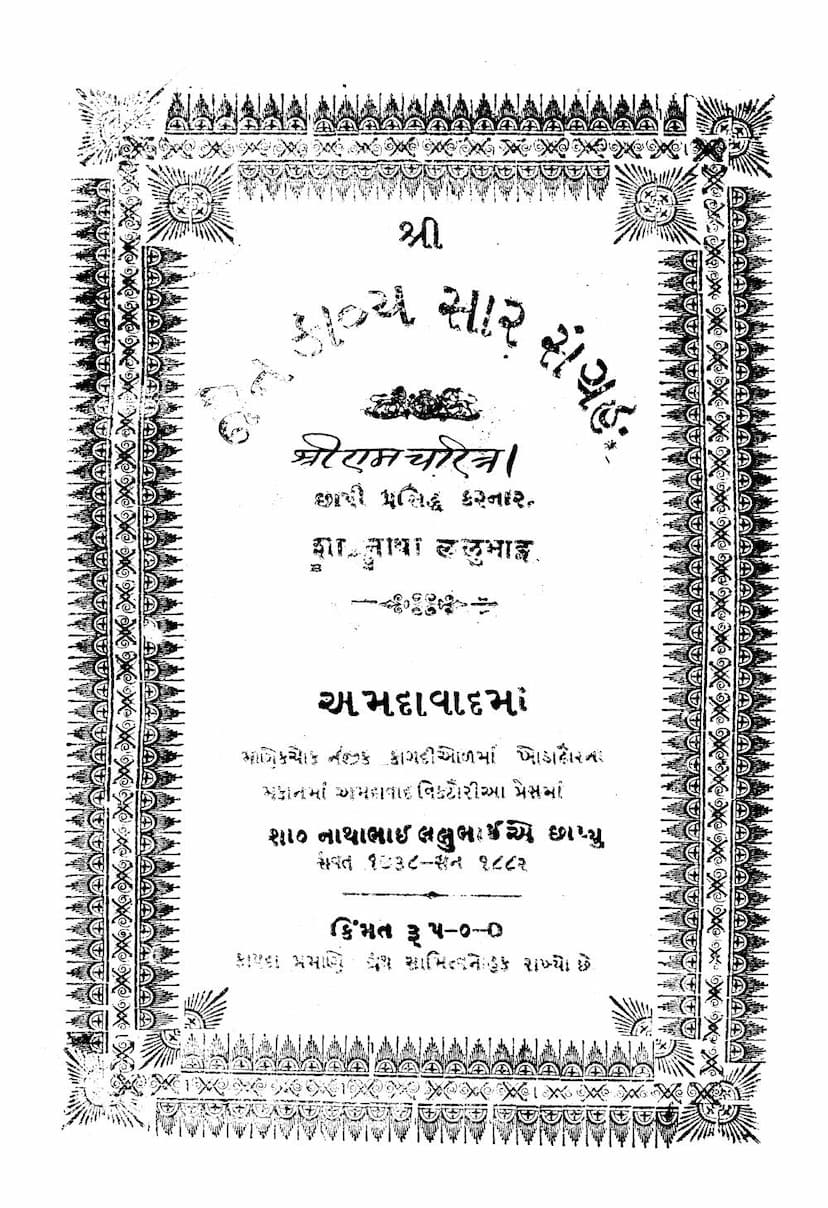 શ્રી
જૈન કાવ્ય સાર સંગ્રહ.
श्रीरामचरित्र।
છાપી પ્રસિદ્ધ કરનાર.
શા. નાથા લલુભાઇ
અમદાવાદમાં
માણેકચોક નજીક કાગદીઓળમાં
મકાનમાં અમદાવાદ વિકટોરીઆ પ્રેસમાં
શા૦ નાથાભાઈ લલુભાઈએ છાપ્યુ
સંવત ૧૯૩૮—સન ૧૮૮૨
કિંમત રૂ ૫-૦-૦
કાયદા પ્રમાણે ગ્રંથ હક રાખ્યો છે